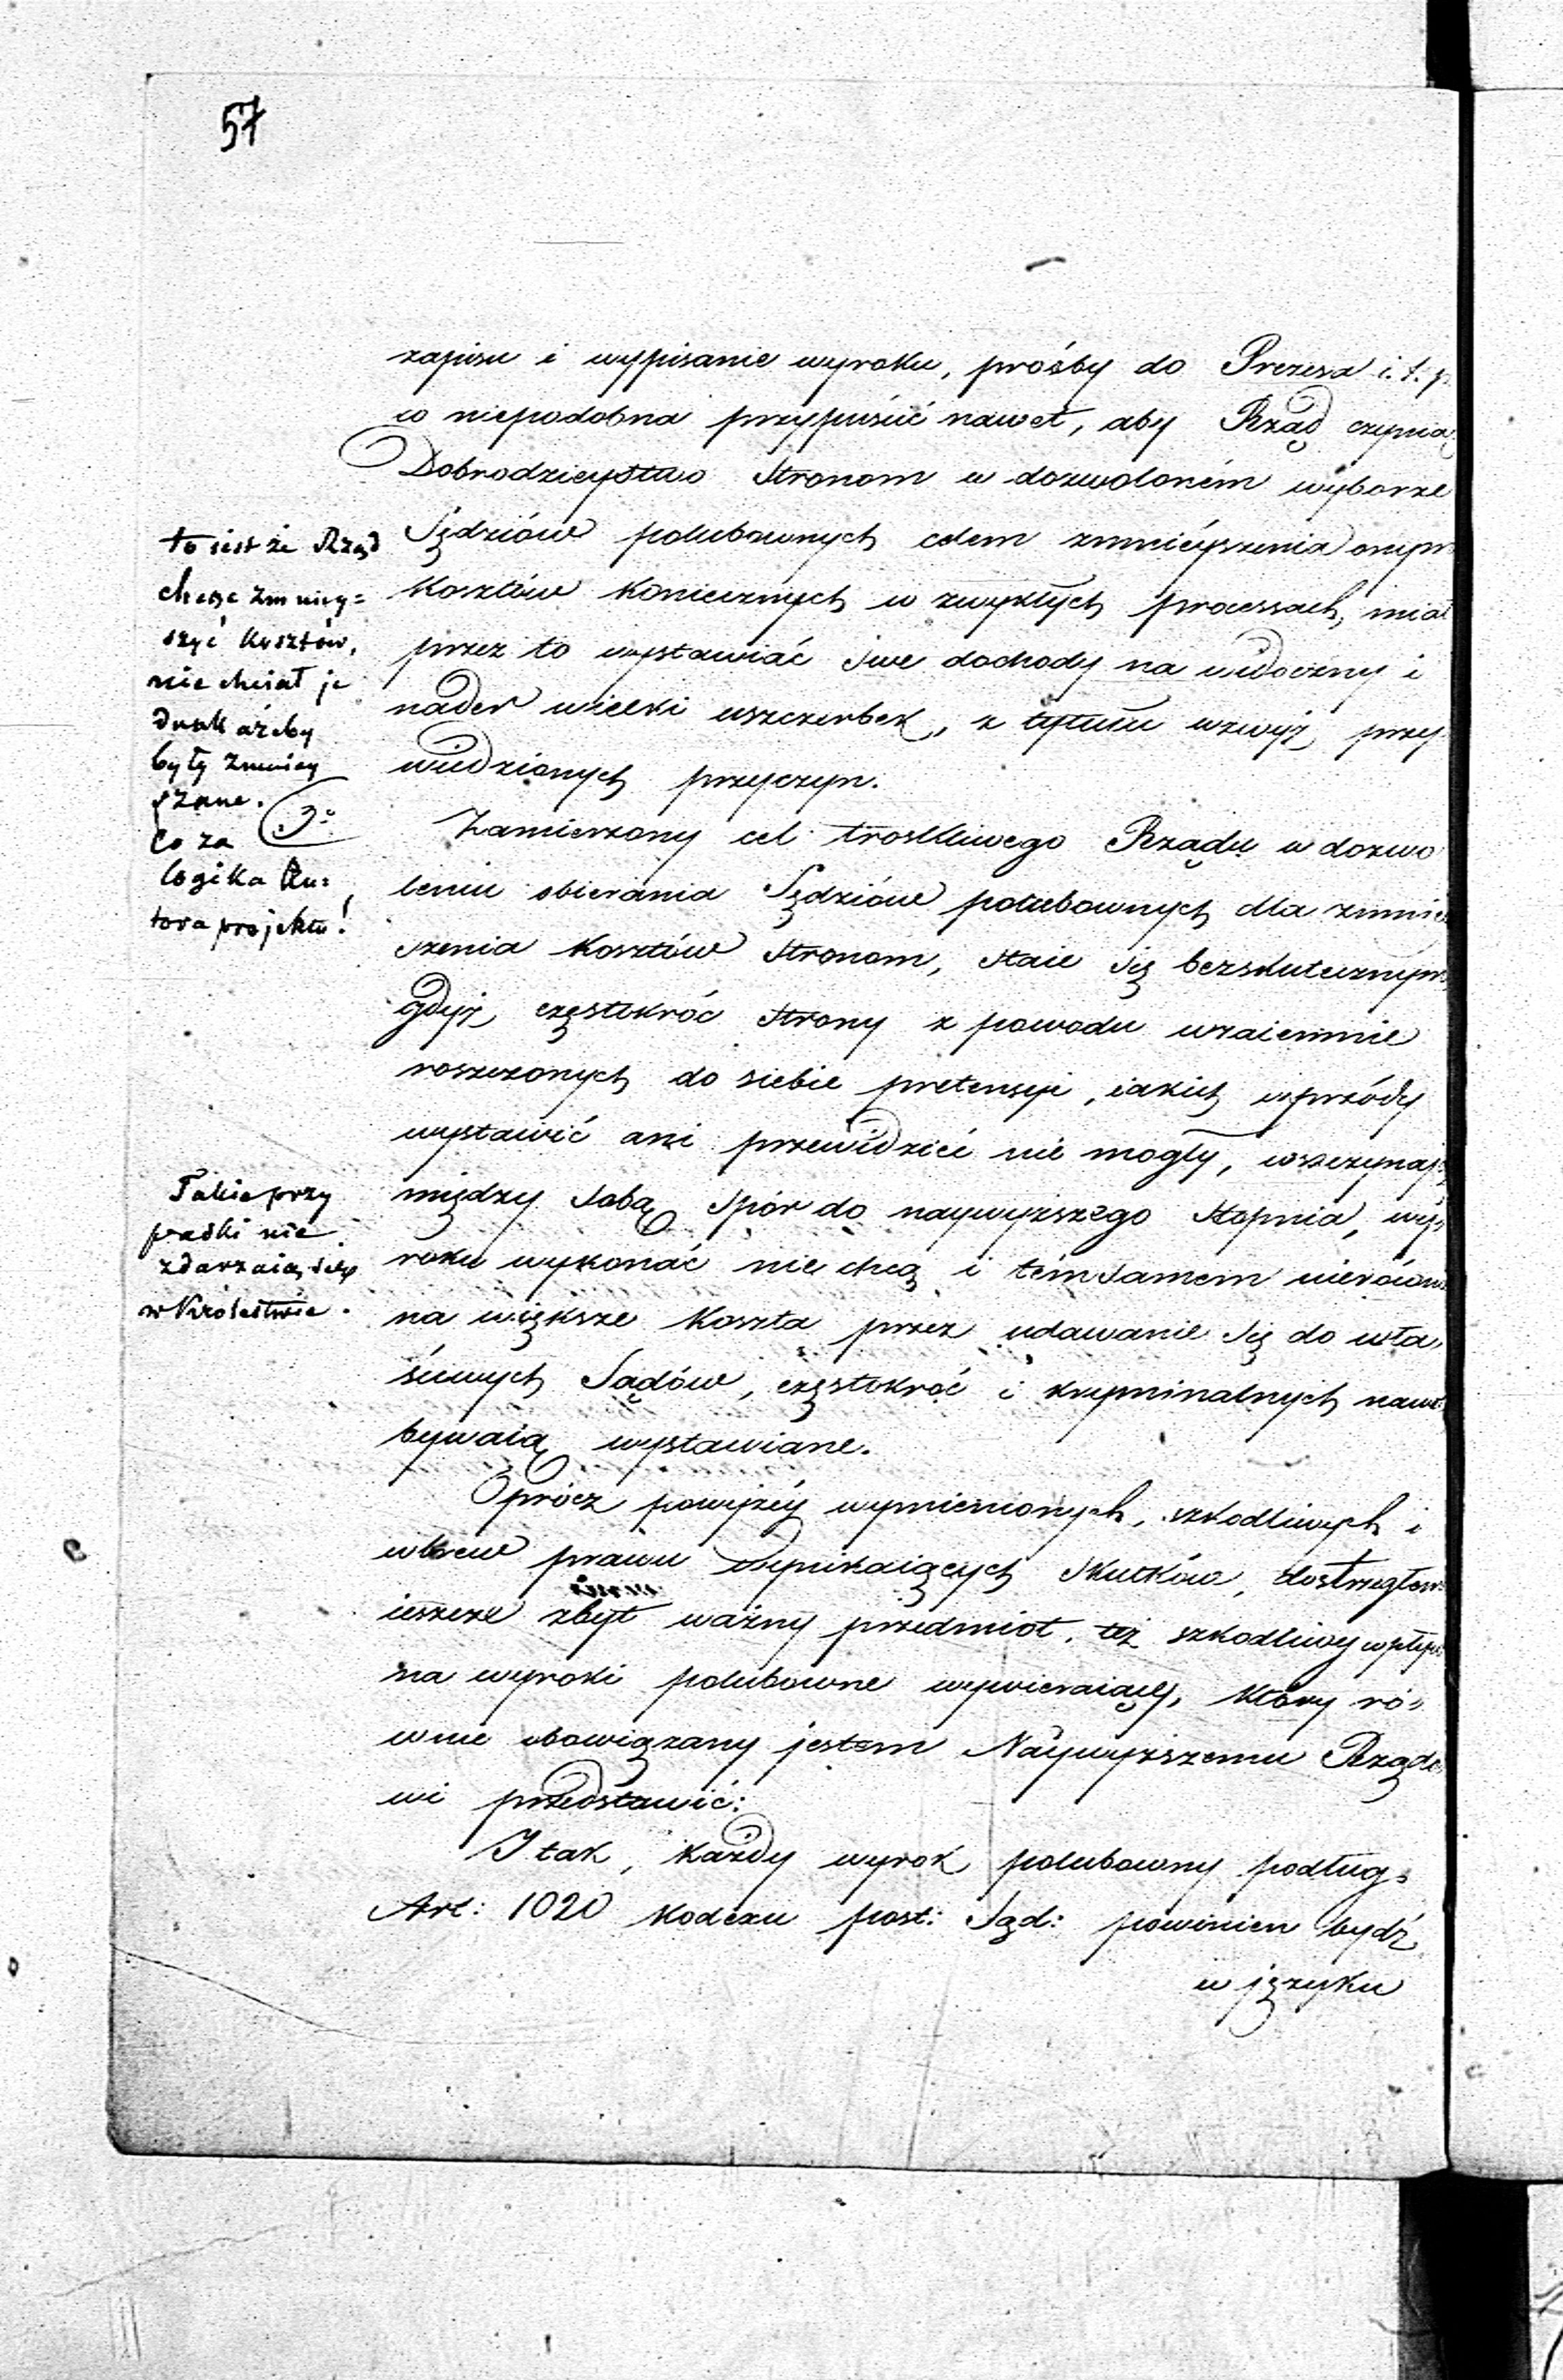 57
zapisu i wypisanie wyroku, prośby do Prezesa i. t. p.
w niepodobna przypuścić nawet, aby Rząd czyniąc
Dobrodzieystwo Stronom w dozwoloném wyborze
Sędziów polubownych celem zmnieyszenia onym
kosztów koniecznych w zwykłych processach, miał
przez to wystawiać swe dochody na widoczny i
nader wielki uszczerbek, z tytułu wzwyż przy
wiedzionych przyczyn.
3o
Zamierzony cel troskliwego Rządu w dozwo
leniu obierania Sędziów polubownych dla zmniey
szenia kosztów Stronom, staie się bezskutecznym
gdyż częstokróć Strony z powodu wzaiemnie
roszczonych do siebie pretensyi, iakich wprzódy
wystawić ani przewidzieć nie mogły, wszczynają
między sobą spór do naywyższego stopnia, wy-
roku wykonać nie chcą i témsamem nierówno
na większe koszta przez udawanie się do wła-
ściwych Sądów, częstokroć i kryminalnych nawet
bywaią wystawiane.
Oprócz powyżéy wymienionych, szkodliwych i
wbrew prawu wynikaiących skutków, dostrzegłem
ieszcze zbyt ważny przedmiot, też szkodliwy wpływ
na wyroki polubowne wywieraiący, który ró-
wnie obowiązany jestem Naywyższemu Rządo
wi przedstawić:
I tak, każdy wyrok polubowny podług
Art: 1020 Kodexu post: Sąd: powinien bydź
w języku
to iest że Rząd
chcąc zmniey=
szyć kosztów,
nie chciał je
dnak ażeby
były zmniey
szone.
Co za
logika Au=
tora projektu!
Takie przy
padki nie
zdarzaią się
w Królestwie.